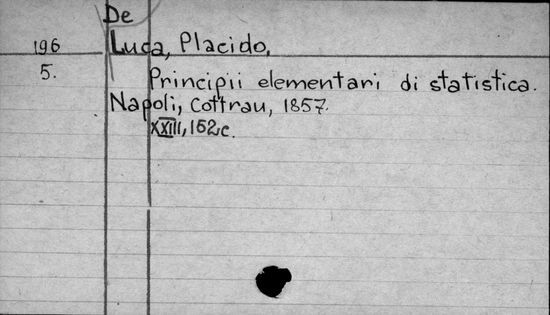 De
196 Luca, Placido,
5. Principii elementari di statistica.
Napoli, Cottrau, 1857.
XXIII, 152c.